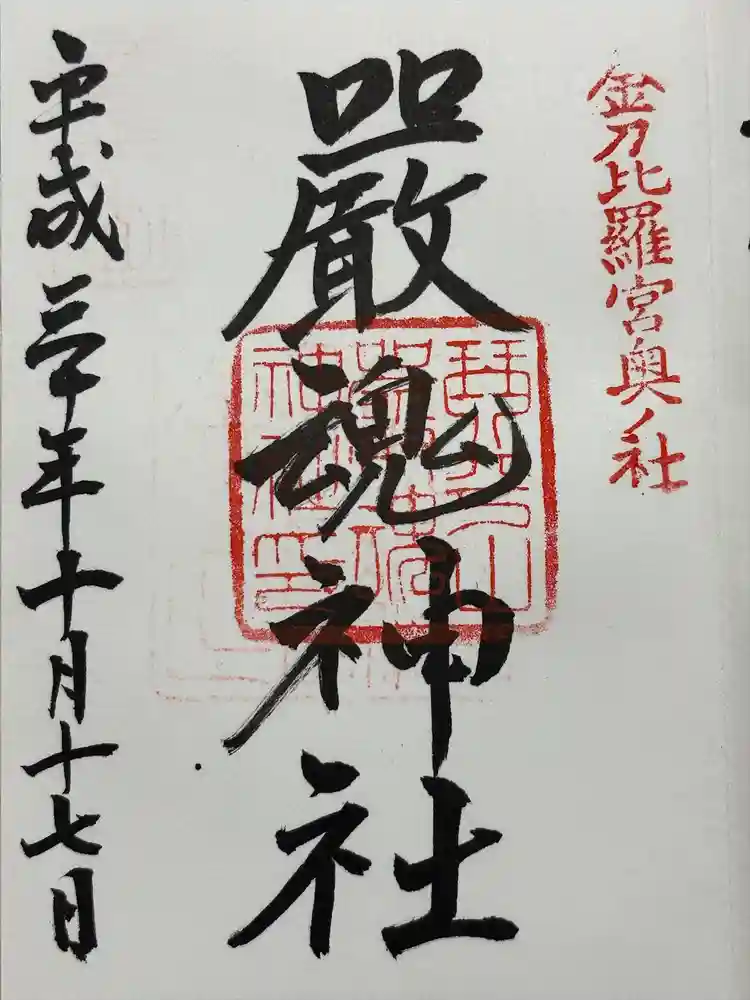 金刀比羅宮奥ノ社
嚴魂神社
平成三十年十月十七日